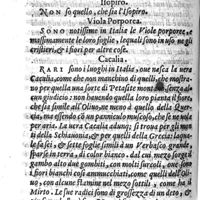 Isopiro.
NON so quello, che sia l'Isopiro.
Viola Porporea.
SONO notissime in Italia le Viole porporee, et
massimamente le loro foglie, lequali sono in uso, ne gli
cristieri, & i fiori per altre cose.
Cacalia.
RARI sono i luoghi in Italia, oue nasca la uera
Cacalia, come che non manchino di quelli, che mostra-
no per questa una sorte di Petasite montano
senza alcuna
giudicio: non hauendo quella loro pianta il fiore,
che sia simile all'Oliuo, ne meno à quello della Quer-
cia, ma essendo composto di piu fiori, di colore, che por-
pora. La uera Cacalia adunque si truoua per gli monti
della Schiauonia, & per quelli della Grecia:
le fa sei, & sette foglie simili à un Verbasco grande
sparse in terra, di color bianco, dal cui mezo sorge il
gambo alto due gombiti, con molti ramuscelli, oue sono
i fiori bianchi cosi ammucchiati, come quelli dell'Oli-
uo, con alcune stamine nel mezo sottili, come ha il
Mirto. Le sue radici sono di grossezza di un deto, &